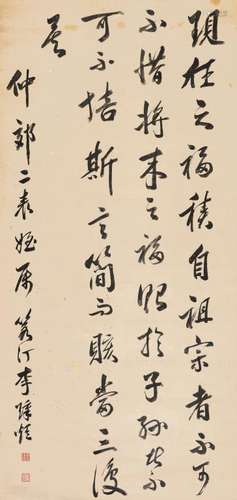 現在之福積自祖宗者不可
不惜將來之福貽於子孫者不
可不培斯言簡而賅當三復
焉
仲郊二表姪屬 汀李璋煜